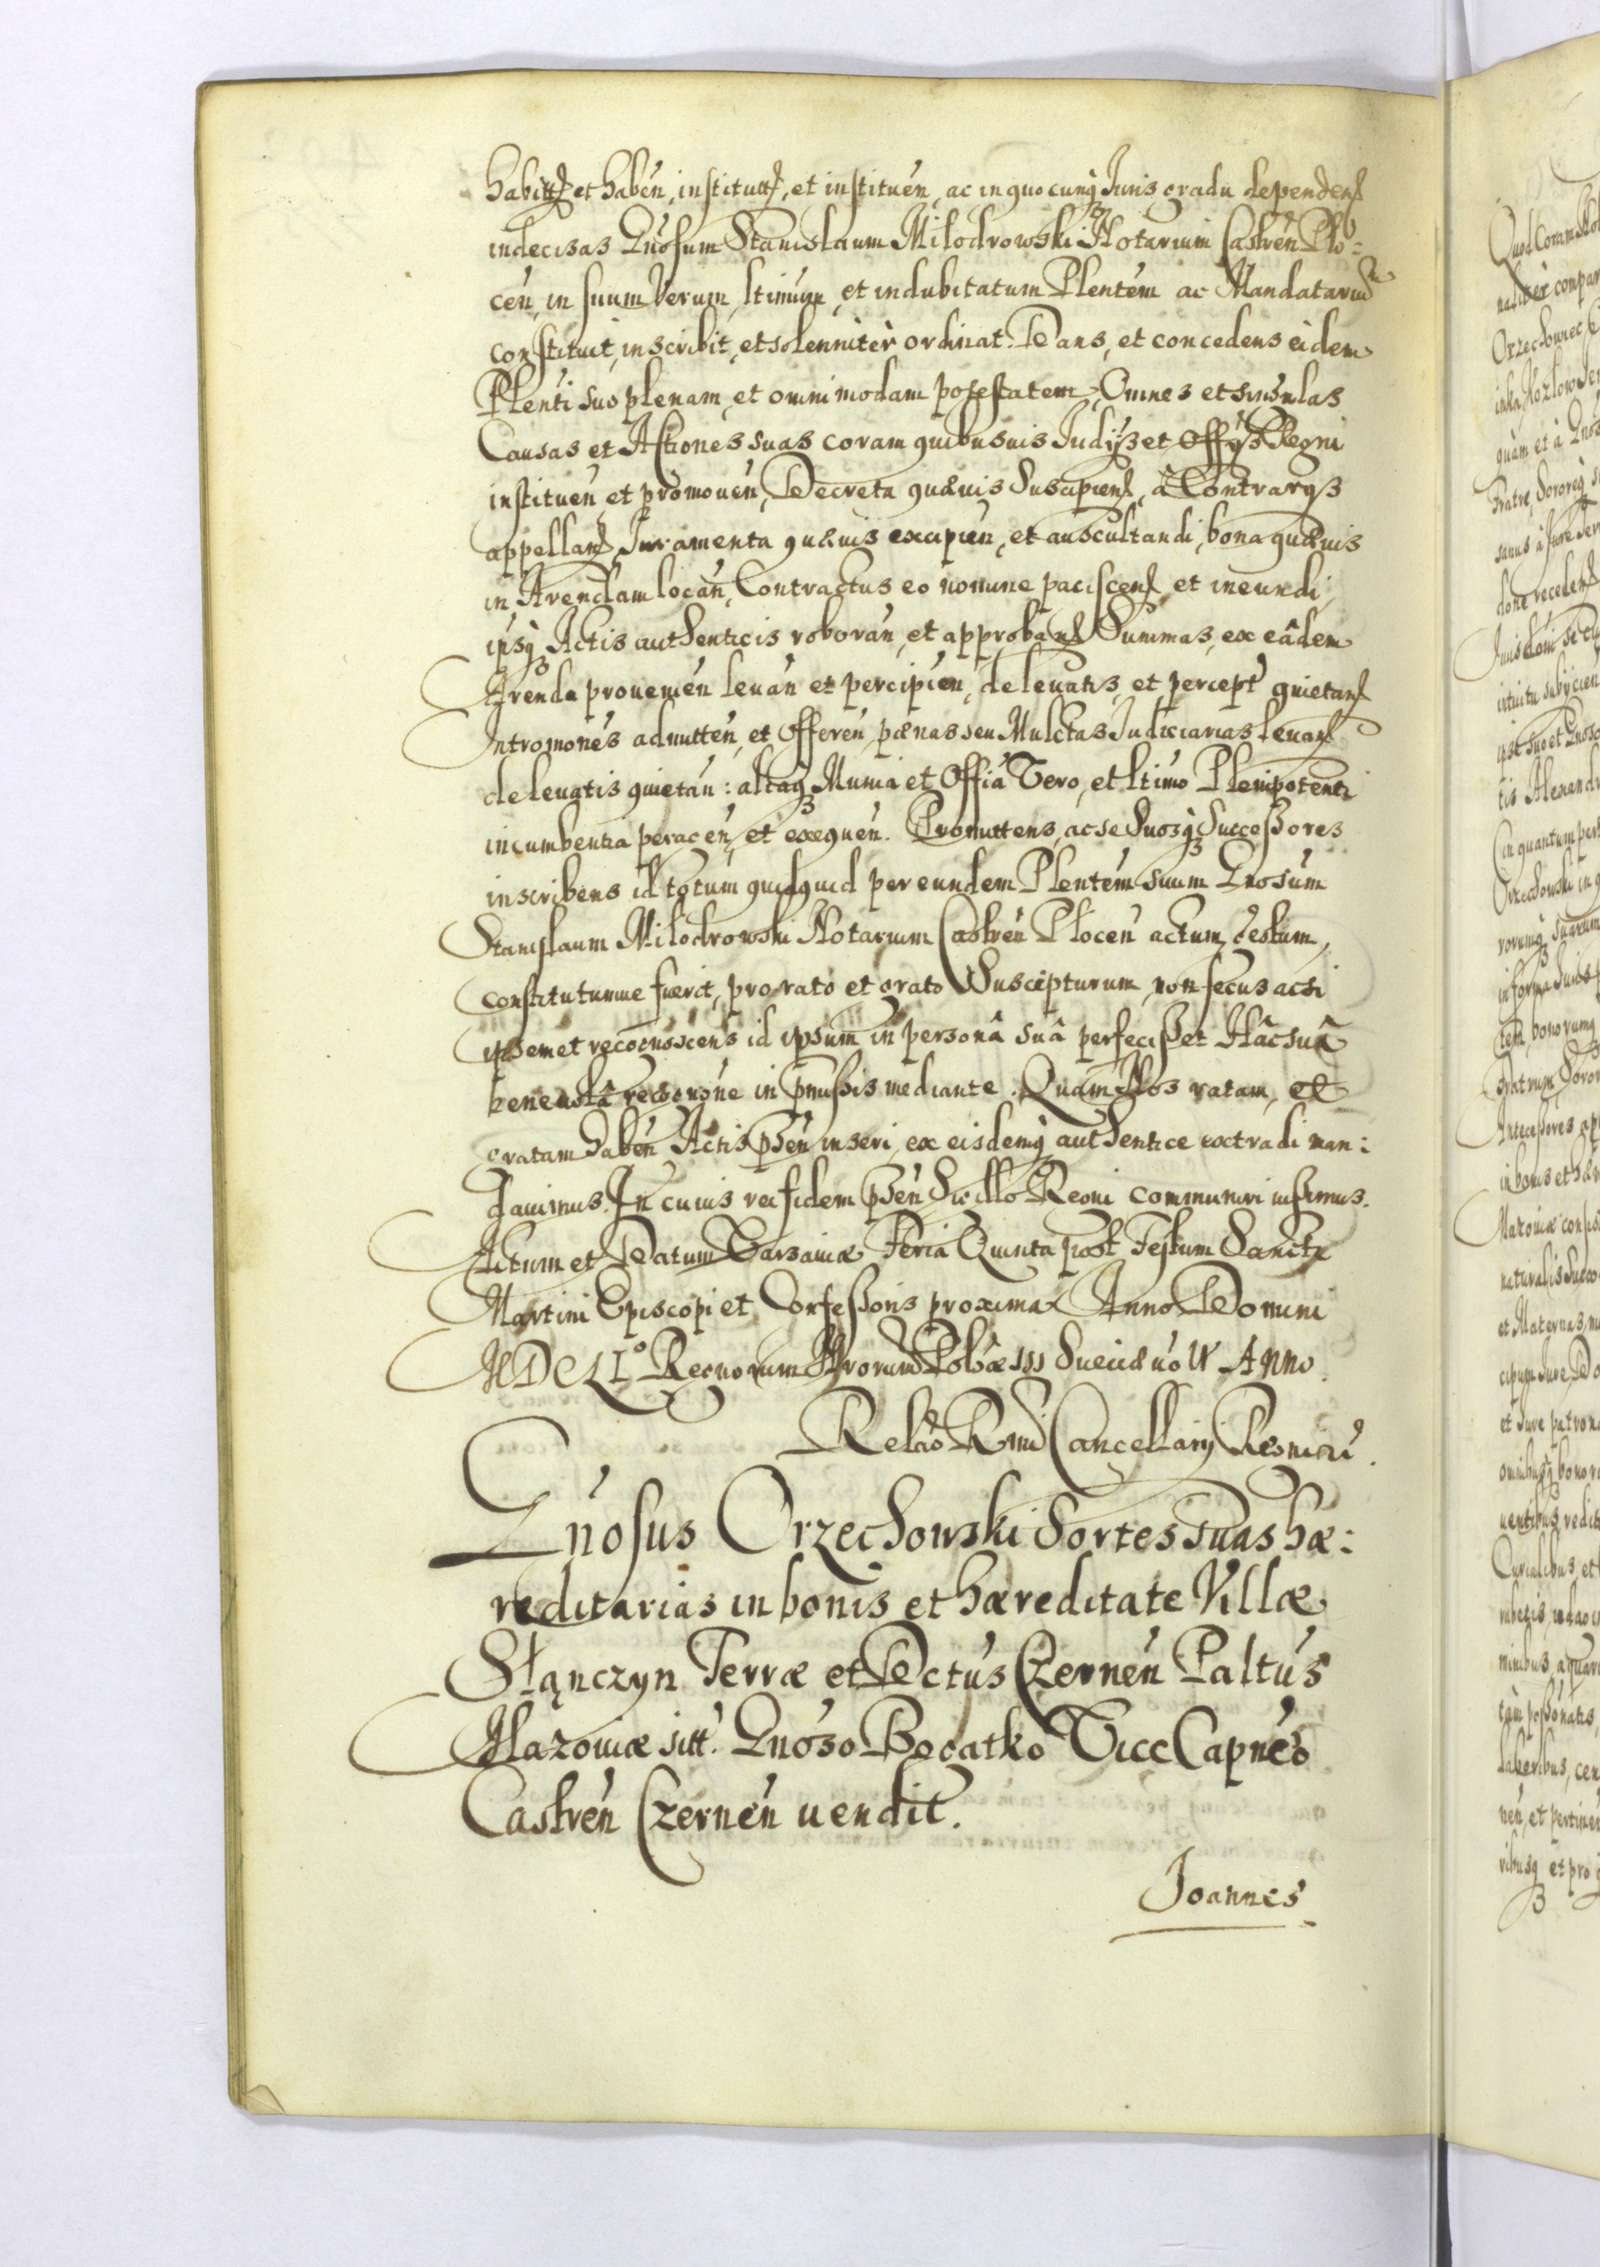 habitt et haben, institutt, et instituen, ac in quocunq Iuris gradu dependen
indecisas Gnosum Stanislaum Milodrowski Notarium Castren Plo:
cen, in suum Verum, ltimum, et indubitatum Plentem ac Mandatarium
constituit, inscribit, et solenniter ordinat. Dans, et concedens eidem
Plenti suo plenam, et omnimodam potestatem, Omnes et singulas
Causas et Actiones suas coram quibusuis Iudijs et Offijs Regni
instituen, et promouen, Decreta quæuis Suscipien, â Contrarijs
appellan, Iuramenta quæuis excipien, et auscultandi, bona quæuis
in Arendam locan, Contractus eo nomine paciscen, et ineundi,
ipsq Actis authenticis roboran, et approban Summas, ex eâdem
Arenda prouenien leuan et percipien, de leuatis, et percept quietan
Intromones admitten, et Offeren, pænas seu Mulctas Iudiciarias leuan
de leuatis quietan: aliaq Munia et Offia Vero, et ltimo Plenipotenti
incumbentia peragen, et exequen. Promittens, ac se Suosq Successores
inscribens id totum quidquid per eundem Plentem suum Gnosum
Stanislaum Milodrowski Notarium Castren Plocen actum, gestum,
constitutumue fuerit, pro rato et grato Suscepturum, non secus ac si
ipsemet recognoscens id ipsum in personâ suâ perfecisset Hâc suâ
beneuolâ recognone in pmissis mediante. Quam Nos ratam, et
gratam haben Actis psen inseri, ex eisdemq authentice extradi man:
dauimus. In cuius rei fidem psen Sigillo Regni communiri iussimus.
Actum et Datum Varsauiæ Feria Quinta post Festum Sancti
Martini Episcopi et Confessoris proxima Anno Domini
MDCLI° Regnorum Nrorum Polôæ III Sueciæ uô IV Anno.
Relao Rmi Cancellarij Regni ut
Gnosus Orzechowski Sortes suas hæ:
reditarias in bonis et hæreditate Villæ
Słanczyn Terræ et Dctus Czernen Paltus
Mazouiæ sitt. Gnoso Bogatko Vice Capneo
Castren Czernen uendit.
Joannes
Quod Coram
naliter compar
Orzechowiec
quam et à Gnos
Fratre, Sororeq
sanus
done receden
intuitu subijcien
tis Alexandr
in quantum per
Orzechowski in
rorumq Suarum
in forma Iuris
bonorumq
Fratrum Soror
Antecessores
in bonis et hær
Mazouiæ
naturalis Succ
et Maternas
et Iure patron
omnibusq bono
uentibus, redit
Curialibus, et
nibus, aquar
laboribus, cen
nen, et pertinen
ribusq et pro